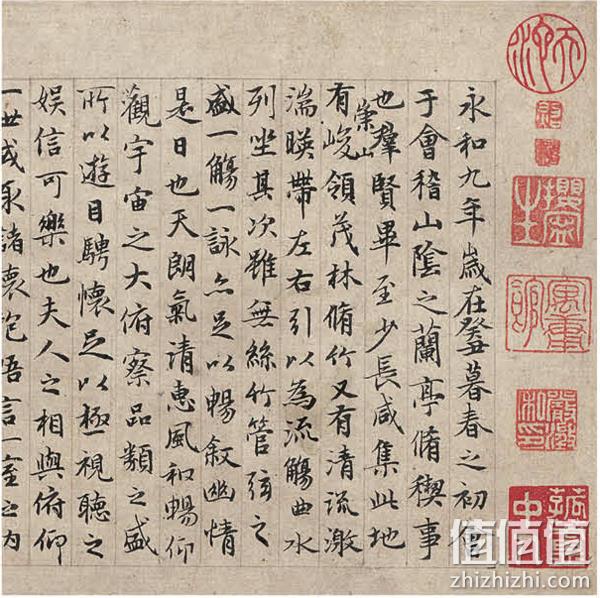 永和九年歲在癸丑暮春之初會
于會稽山陰之蘭亭脩禊事
也羣賢畢至少長咸集此地
有崇山峻領茂林脩竹又有清流激
湍暎帶左右引以為流觴曲水
列坐其次雖無絲竹管弦之
盛一觴一詠亦足以暢敘幽情
是日也天朗氣清惠風和暢仰
觀宇宙之大俯察品類之盛
所以遊目騁懷足以極視聽之
娛信可樂也夫人之相與俯仰
一世或取諸懷抱悟言一室之內
值值值
zhizhizhi.com